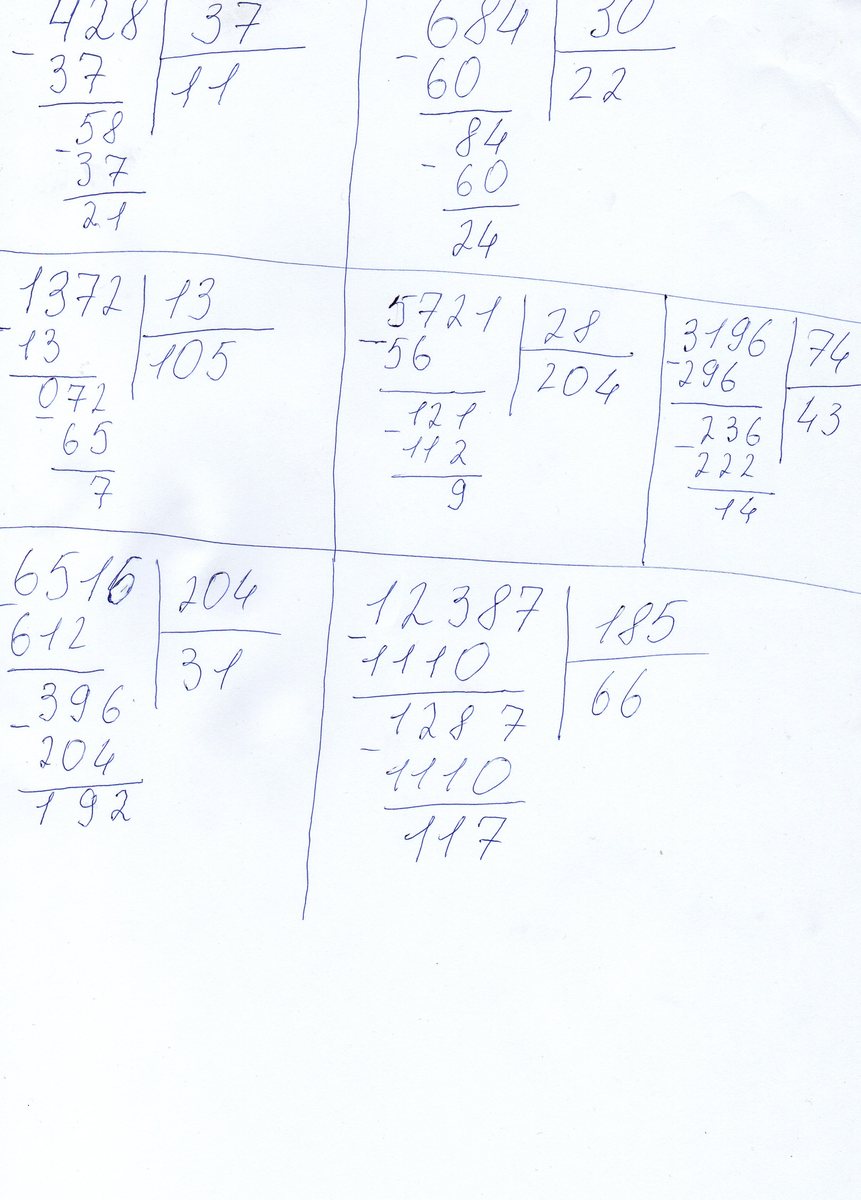 428 37
- 37 11
58
- 37
21
684 30
- 60 22
84
- 60
24
1372 13
- 13 105
072
- 65
7
5721 28
- 56 204
121
- 112
9
3196 74
- 296 43
236
- 222
14
6516 204
- 612 31
396
- 204
192
12387 185
- 1110 66
1287
- 1110
117